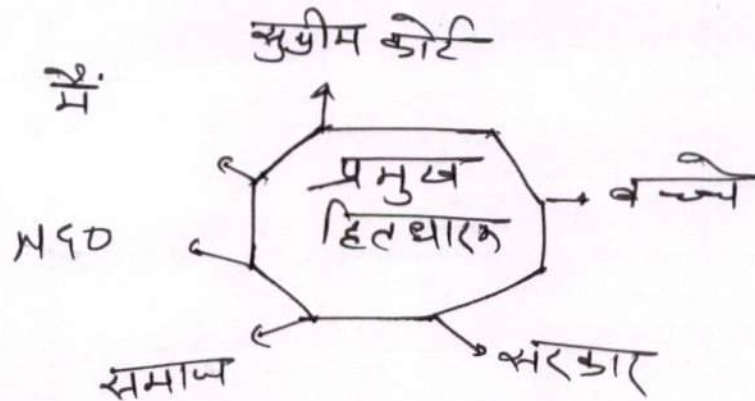 सुप्रीम कोर्ट
मैं
प्रमुख
हितधारक
बच्चे
NGO
समाज
सरकार